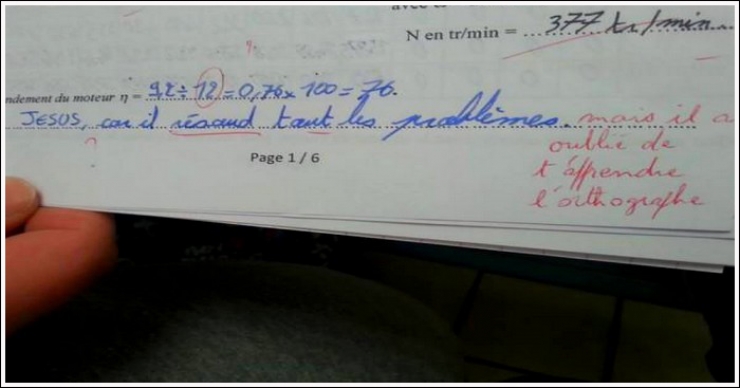 N en tr/min = 377 tr/min
ndement du moteur η = 9,2 ÷ 12 = 0,76 x 100 = 76.
JESUS, car il résoud tant les problèmes. mais il a
?
oublié de
Page 1 / 6
t'apprendre
l'orthographe